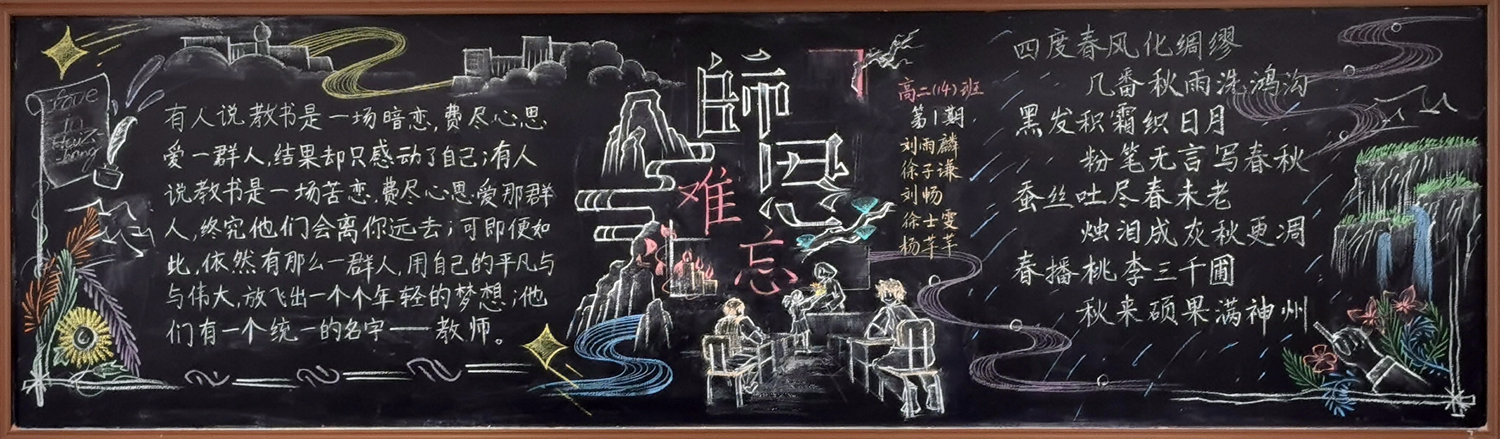 Love
有人说教书是一场暗恋,费尽心思
爱一群人,结果却只感动了自己;有人
说教书是一场苦恋,费尽心思爱那群
人,终究他们会离你远去;可即便如
此,依然有那么一群人,用自己的平凡与
与伟大,放飞出一个个年轻的梦想;他
们有一个统一的名字——教师。
师恩
难忘
高二(14)班
第1期
刘雨麟
徐子谦
刘畅
徐士雯
杨芊芊
四度春风化绸缪
几番秋雨洗鸿沟
黑发积霜织日月
粉笔无言写春秋
蚕丝吐尽春未老
烛泪成灰秋更凋
春播桃李三千圃
秋来硕果满神州